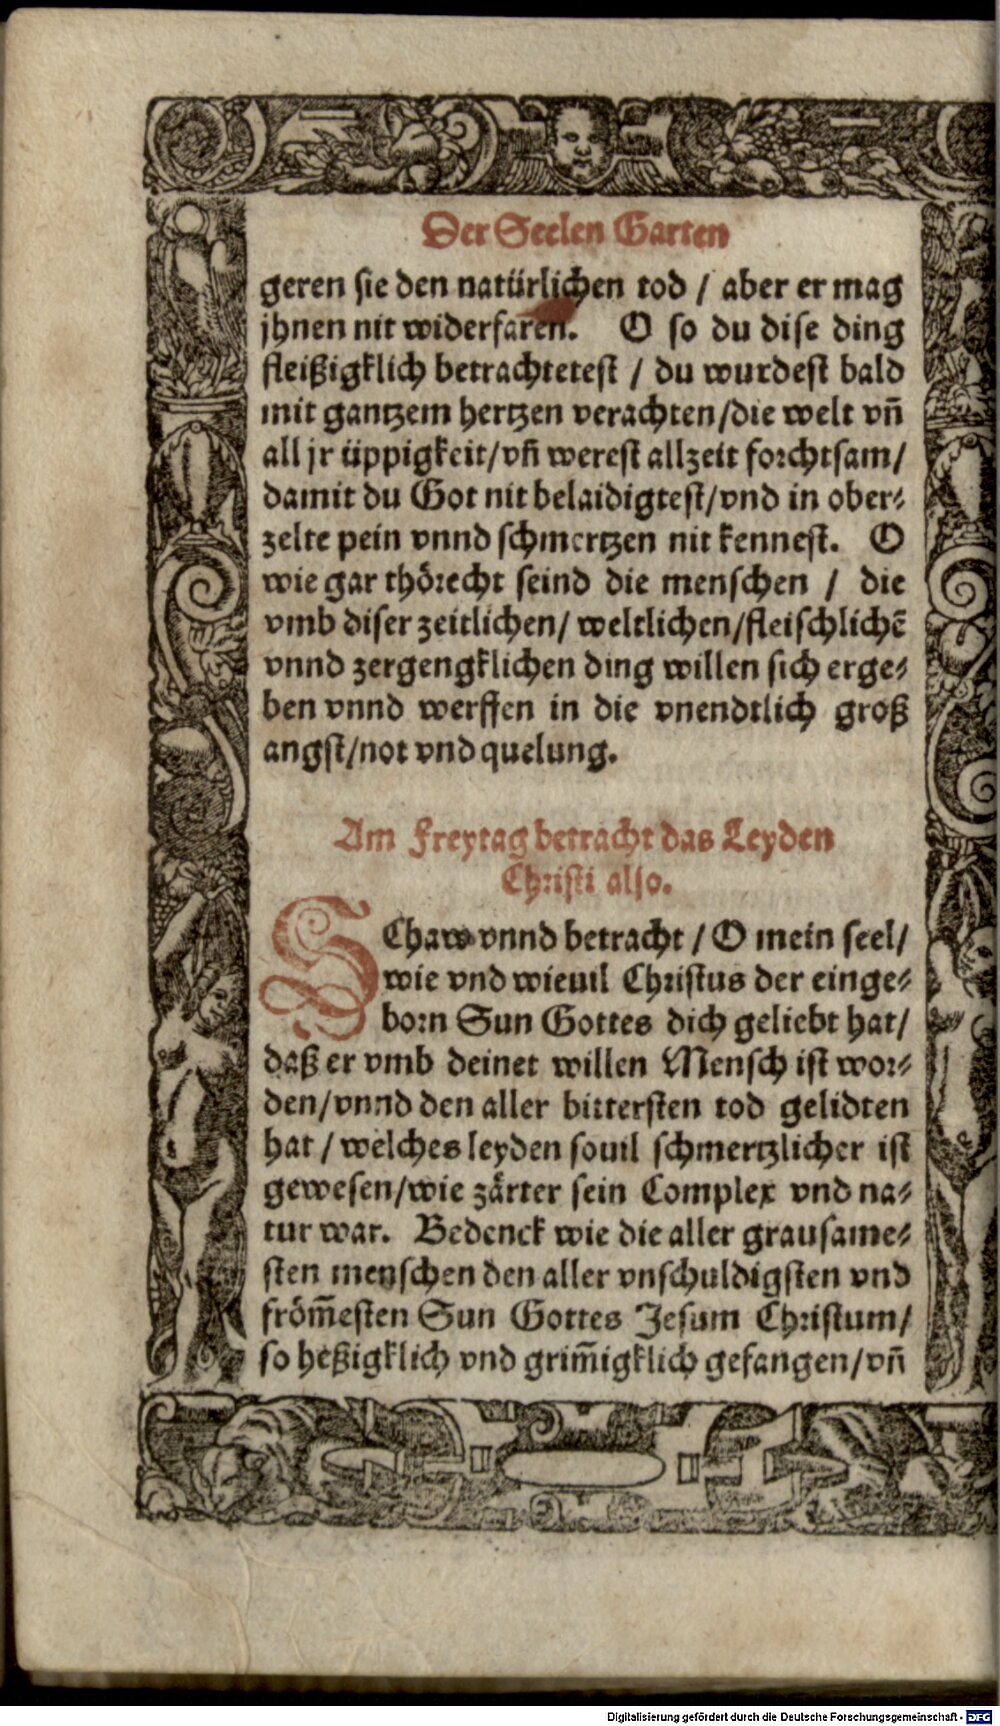 Der Seelen Garten
geren sie den natürlichen tod / aber er mag
jhnen nit widerfaren. O so du dise ding
fleißigklich betrachtetest / du wurdest bald
mit gantzem hertzen verachten/die welt vñ
all jr üppigkeit/vñ werest allzeit forchtsam/
damit du Got nit belaidigtest/vnd in ober⸗
zelte pein vnnd schmertzen nit kennest. O
wie gar thörecht seind die menschen / die
vmb diser zeitlichen/ weltlichen/fleischlichẽ
vnnd zergengklichen ding willen sich erge⸗
ben vnnd werffen in die vnendtlich groß
angst/not vnd quelung.
Am Freytag betracht das Leyden
Christi also.
SChaw vnnd betracht / O mein seel/
wie vnd wieuil Christus der einge⸗
born Sun Gottes dich geliebt hat/
daß er vmb deinet willen Mensch ist wor⸗
den/vnnd den aller bittersten tod gelidten
hat / welches leyden souil schmertzlicher ist
gewesen/wie zärter sein Complex vnd na⸗
tur war. Bedenck wie die aller grausame⸗
sten menschen den aller vnschuldigsten vnd
from̃esten Sun Gottes Jesum Christum/
so heßigklich vnd grim̃igklich gefangen/vñ
Digitalisierung gefördert durch die Deutsche Forschungsgemeinschaft - DFG